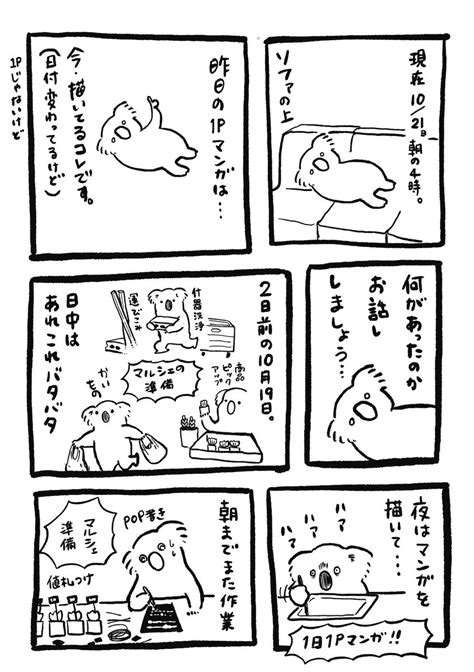 現在10/21日朝の4時。
ソファの上
昨日の1Pマンガは…
今・描いてるコレです。
(日付変わってるけど)
1Pじゃないけど
何があったのか
お話し
しましょう…
2日前の10月19日。
什器洗浄
運びこみ
マルシェの
準備
商品
ピック
アップ
かい
もの
日中は
あれこれバタバタ
夜はマンガを
描いて…
ハァ
ハァ
ハァ
1日1Pマンガ!!
朝までまた作業
POP書き
マルシェ
準備
値札つけ